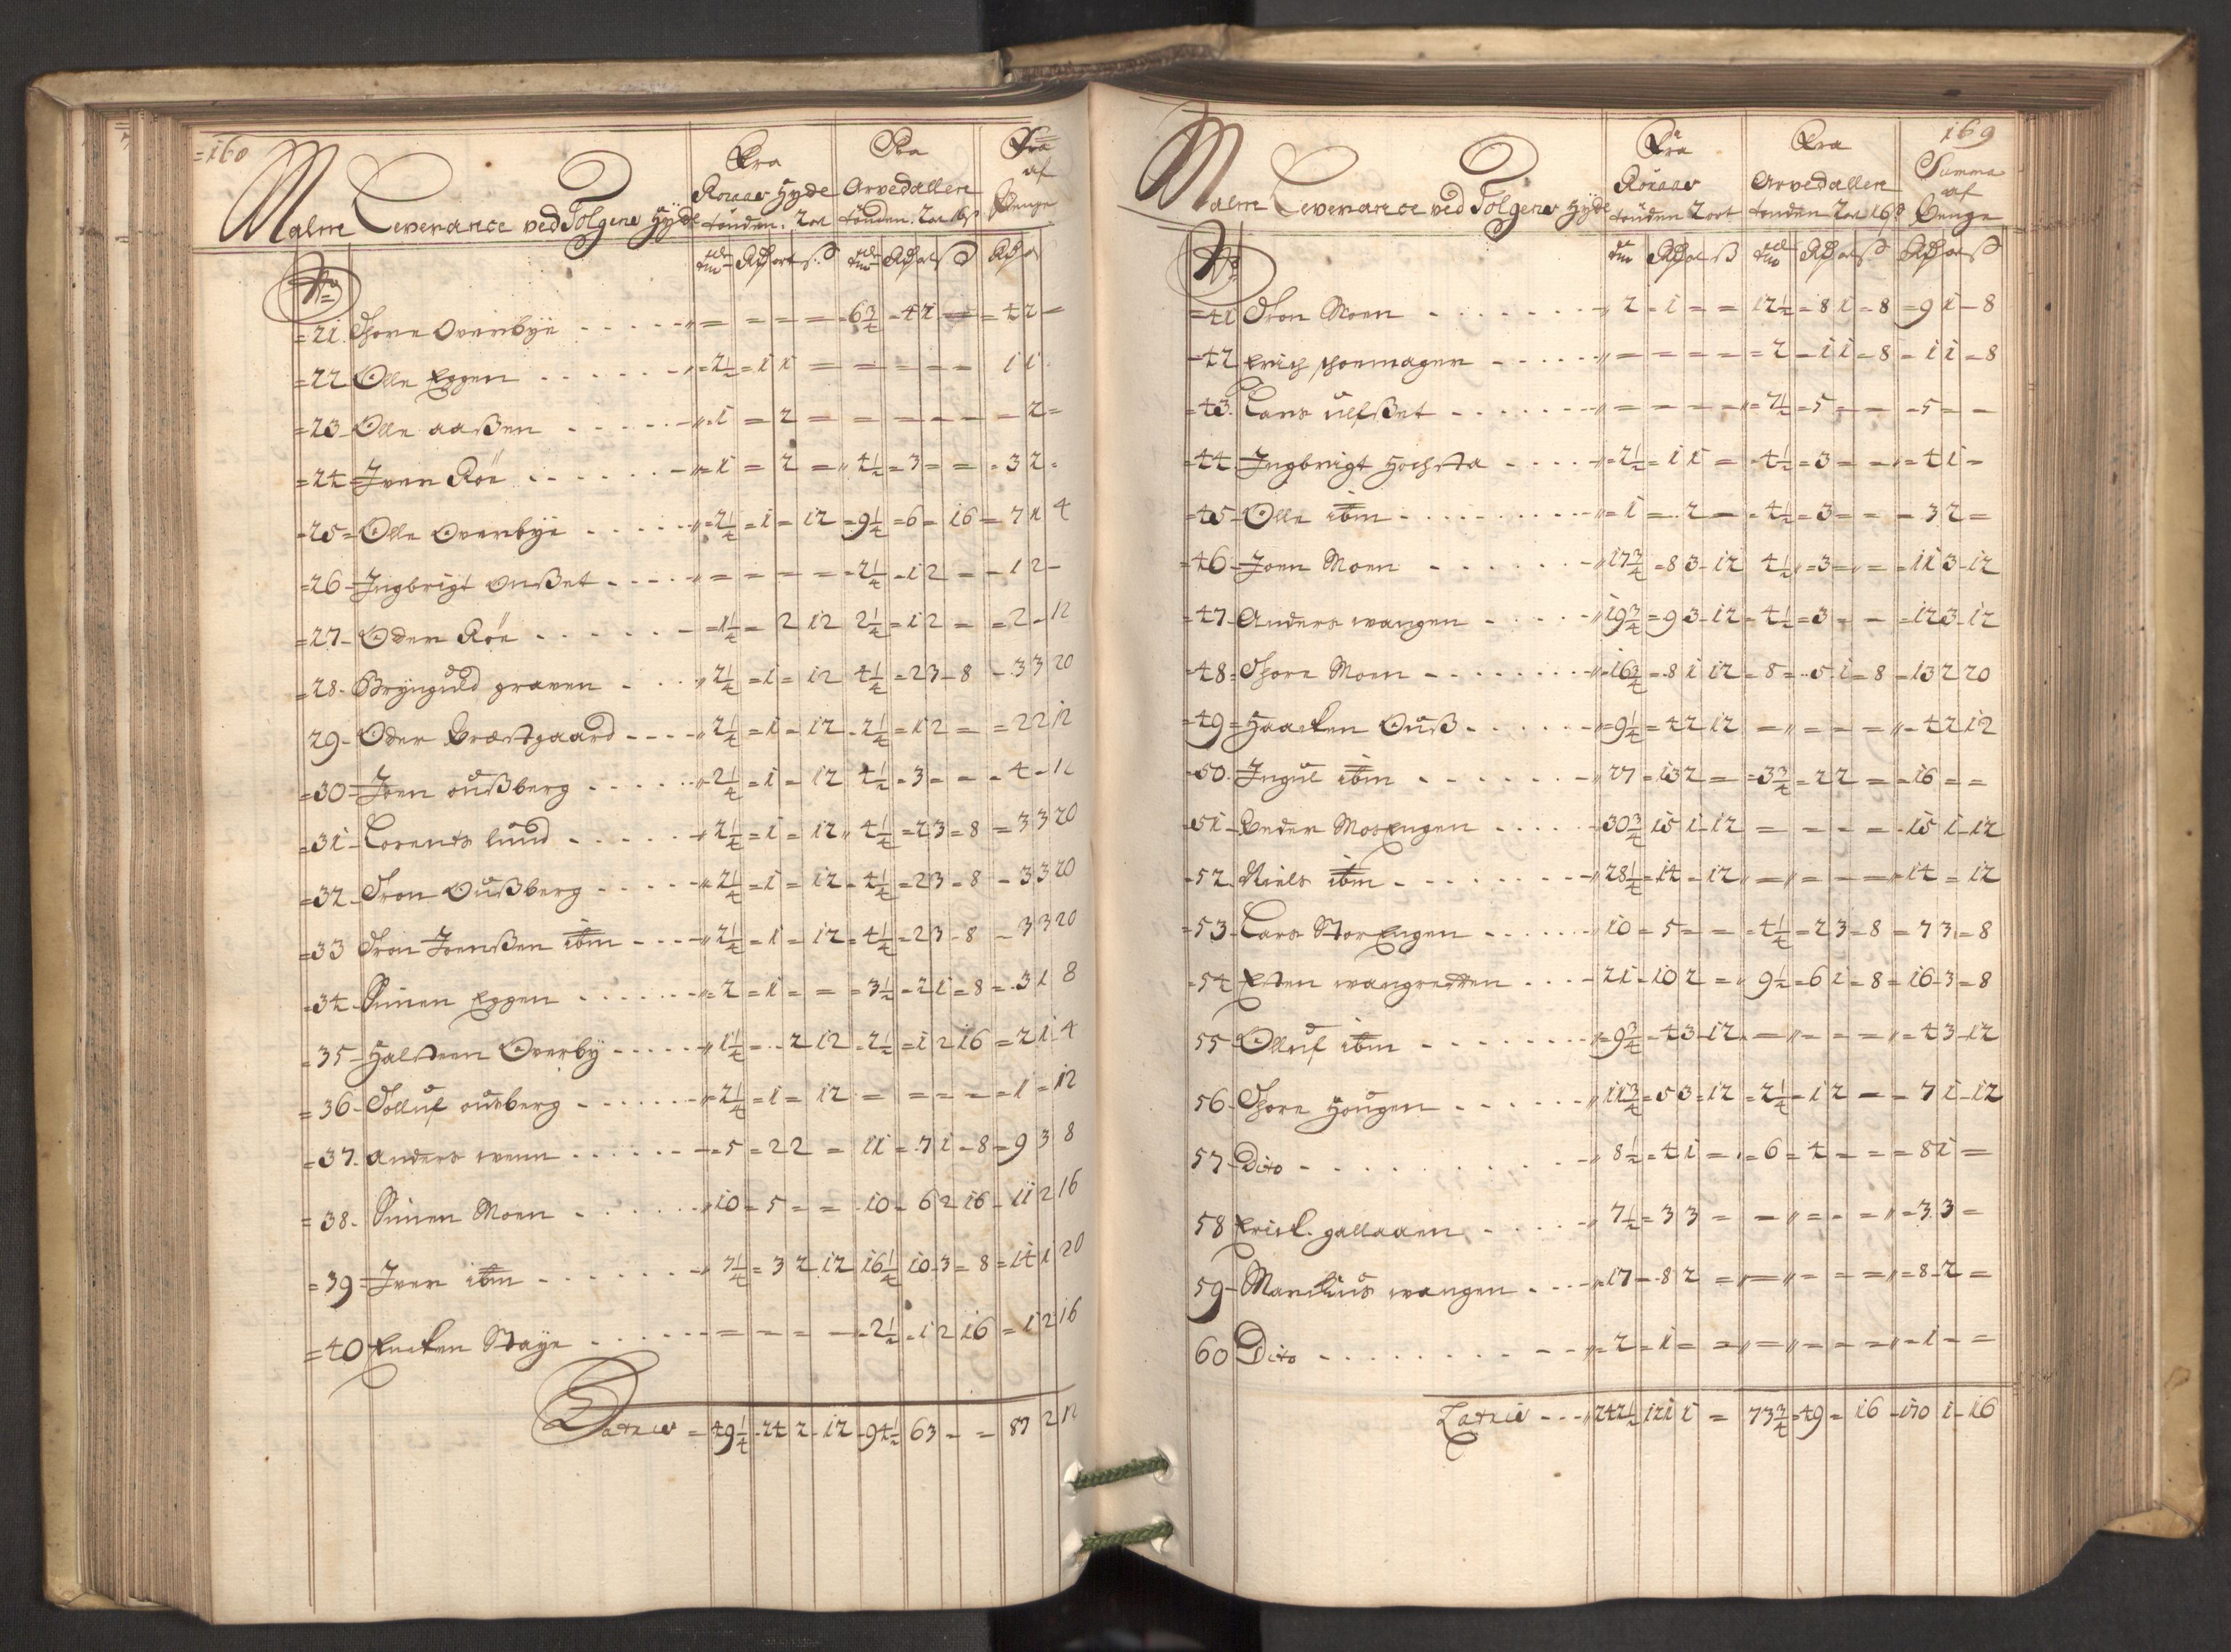 =160
Malm Leverance ved Tolgens Hÿtte
Fra Rouaas Hyde tönden: 2 ort
Fra Arvedallen tönden: 2 ort 16 s
Sua af Penge
No
tdr Rdr ort s tdr Rdr ort s Rdr ort s
=21. Thore Overbÿe - - - - - „ = = = = = 6 3/4 - 4 2 = = 4 2 =
=22 Olle Eggen - - - - - „ = 2 1/2 = 1 1 = = = = = 1 1
=23 - Olle aaßen - - - - - „ - 1 = 2 = = = = = = 2 =
=24 = Iver Röe - - - - - „ = 1 = 2 = „ 4 1/2 = 3 = = = 3 2 =
=25 = Olle Overbÿe - - - - - „ = 2 1/4 = 1 = 12 = 9 1/4 = 6 = 16 = 7 1 4
=26 - Ingbrigt Onßet - - - - „ = = = = = 2 1/4 = 1 2 = = 1 2 -
=27 - Oder Röe - - - - - = 1 1/4 = 2 12 2 1/4 = 1 2 = = 2 - 12
=28 - Brÿnguld graven - - - „ 2 1/4 = 1 = 12 4 1/4 = 2 3 - 8 = 3 3 20
29 - Oder Præstgaard - - - - „ 2 1/4 = 1 - 12 - 2 1/4 = 1 2 = = 2 2 12
=30 = Joen oußberg - - - - - „ 2 1/4 = 1 = 12 4 1/2 = 3 = = = 4 - 12
=31 - Lorents lund - - - - - „ 2 1/4 = 1 = 12 „ 4 1/4 = 2 3 = 8 = 3 3 20
=32 - Tron Oußberg - - - - „ 2 1/4 = 1 = 12 = 4 1/4 = 2 3 = 8 = 3 3 20
=33 Tron Joenßen ibm - - - - „ 2 1/4 = 1 = 12 = 4 1/4 = 2 3 = 8 - 3 3 20
=34 - Simen Eggen - - - - - „ = 2 = 1 = = = 3 1/2 = 2 1 = 8 = 3 1 8
=35 - Halsteen Overbÿ - - - - - „ 1 1/4 = - 2 12 - 2 1/2 = 1 2 16 = 2 1 4
=36 - Tolluf ousberg - - - - - „ = 2 1/4 = 1 = 12 = = = = = 1 = 12
=37 - anders wenn - - - - - = 5 = 2 2 = 11 = 7 1 - 8 = 9 3 8
=38 - Simen Moen - - - - - „ 10 = 5 = = 10 = 6 2 16 = 11 2 16
=39 = Iver ibm - - - - - „ 7 1/4 = 3 2 12 16 1/4 10 3 = 8 = 14 1 20
=40 Staÿe - - - - - = = = = - 2 1/2 = 1 2 16 = 1 2 16
Latris = 49 1/4 - 24 2 - 12 - 94 1/2 63 - = 87 2 12
169
Malm Leverance ved Tolgens Hÿtte
Fra Rouaas tönden 2 ort
Fra Arvedallen tonden 2 ort 16 s
Summa af Penge
No
tdr Rdr ort s tdr Rdr ort s Rdr ort s
=41 Tron Moen - - - - - „ 2 = 1 = = 12 1/2 = 8 1 = 8 = 9 1 - 8
=42 Erich schoemager - - - - - „ = = = = = 2 = 1 1 = 8 = 1 1 = 8
=43 - Lars ulfßet - - - - - „ = = = = „ 7 1/2 = 5 = = - 5 = -
=44 - Ingbrigt Hochsta - - - - „ 2 1/2 = 1 1 = 4 1/2 = 3 = = = 4 1 =
=45 - Olle ibm - - - - - „ = 1 = 2 = 4 1/2 = 3 = = - 3 2 =
=46 - Joen Moen - - - - - „ 17 3/4 = 8 3 - 12 4 1/2 „ = 3 = „ = = 11 3 - 12
=47 - Anders wangen - - - - - „ 19 3/4 = 9 3 - 12 = 4 1/2 = 3 = = = 12 3 - 12
48 = Thore Moen - - - - - „ 16 3/4 = 8 1 12 = 8 = 5 1 = 8 = 13 2 20
=49 = Haacken Ouß - - - - - „ = 9 1/4 = 4 2 12 = „ = = = „ - 4 2 12
50 - Ingul ibm - - - - - „ 27 = 13 2 = = 3 3/4 = 2 2 = = 16 = =
51 - Peder Mosengen - - - - - 30 3/4 15 1 - 12 = = = = - 15 1 - 12
=52. Niels ibm - - - - - „ 28 1/4 = 14 = 12 „ = „ = = = „ 14 = 12
=53 - Lars StorEngen - - - - - „ 10 = 5 = = = 4 1/4 = 2 3 = 8 = 7 3 = 8
=54 - Esten wangrødden - - - - 21 = 10 2 = „ 9 1/2 = 6 1 = 8 = 16 - 3 = 8
55 - Olluf ibm - - - - - „ = 9 3/4 = 4 3 - 12 = „ = = = „ = 4 3 - 12
56 - Thore Hougen - - - - - „ 11 3/4 = 5 3 = 12 = 2 1/4 = 1 2 = = 7 1 - 12
57 - Dito - - - - - „ 8 1/2 = 4 1 = = 6 = 4 = = = 8 1 =
58 Erick. gallaaen - - - - - „ 7 1/2 = 3 3 = = „ = = = „ = 3 3 =
59 - Marckus wangen - - - - „ = 17 = 8 2 = „ = „ = = = „ = 8 - 2 =
60 Dito - - - - - „ = 2 = 1 = = „ = „ = = = „ - 1 - =
Latris - - - „ 242 1/2 121 1 = 73 3/4 = 49 = 16 = 170 1 - 16